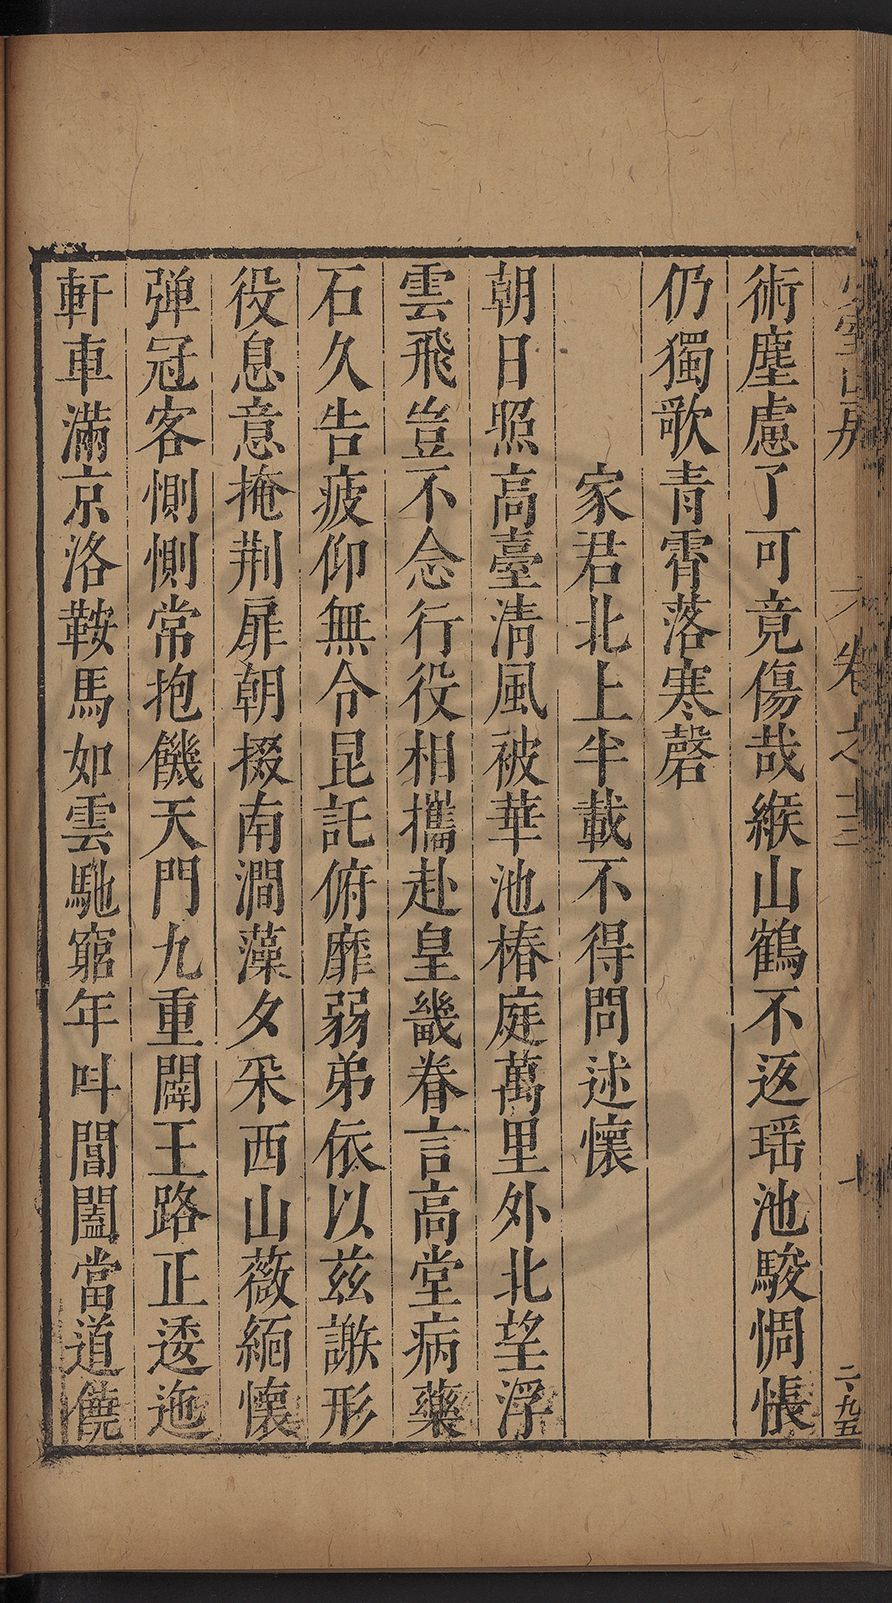 少室山房
卷之十三
二、九五
術塵慮了可竟傷哉緱山鶴不返瑶池駿惆悵
仍獨歌青霄落寒磬
家君北上半載不得問述懷
朝日照高臺清風被華池椿庭萬里外北望浮
雲飛豈不念行役相攜赴皇畿眷言高堂病藥
石久告疲仰無令昆託俯靡弱弟依以茲謝形
役息意掩荆扉朝掇南澗藻夕采西山薇緬懷
弹冠客惻惻常抱饑天門九重闢王路正逶迤
軒車滿京洛鞍馬如雲馳窮年呌閶闔當道僥